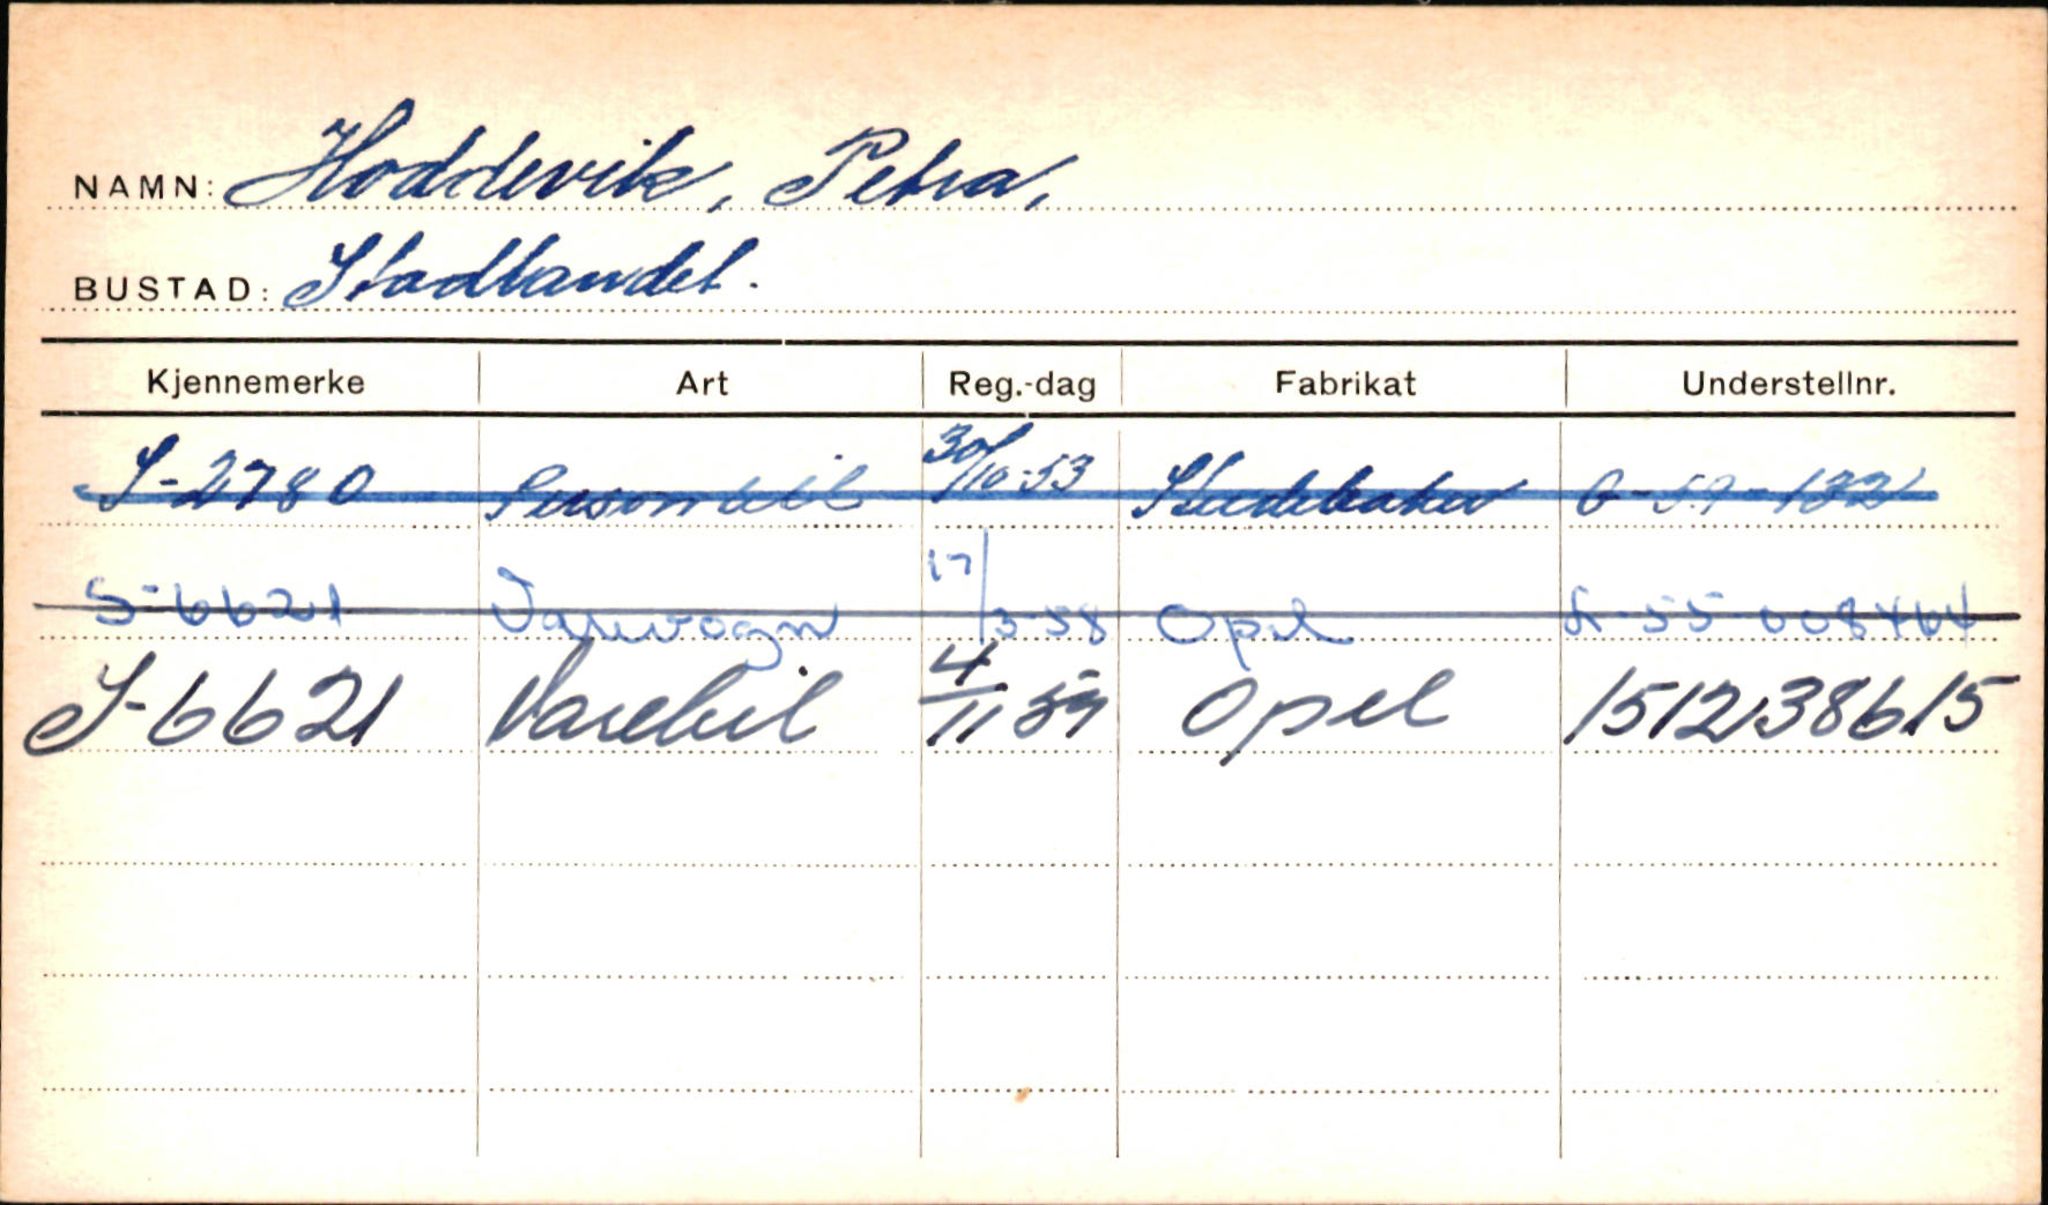 NAMN: Hoddevik, Petra,
BUSTAD: Stadlandet.
Kjennemerke Art Reg.-dag Fabrikat Understellnr.
S-2780 Personbil 30/10-53 Studebaker
S-6621 Varevogn 17/3-58 Opel
S-6621 Varebil 4/11 59 Opel 151238615